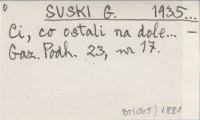 SUSKI G. 1935...
Ci, co ostali na dole... –
Gaz. Podh. 23, nr 17.